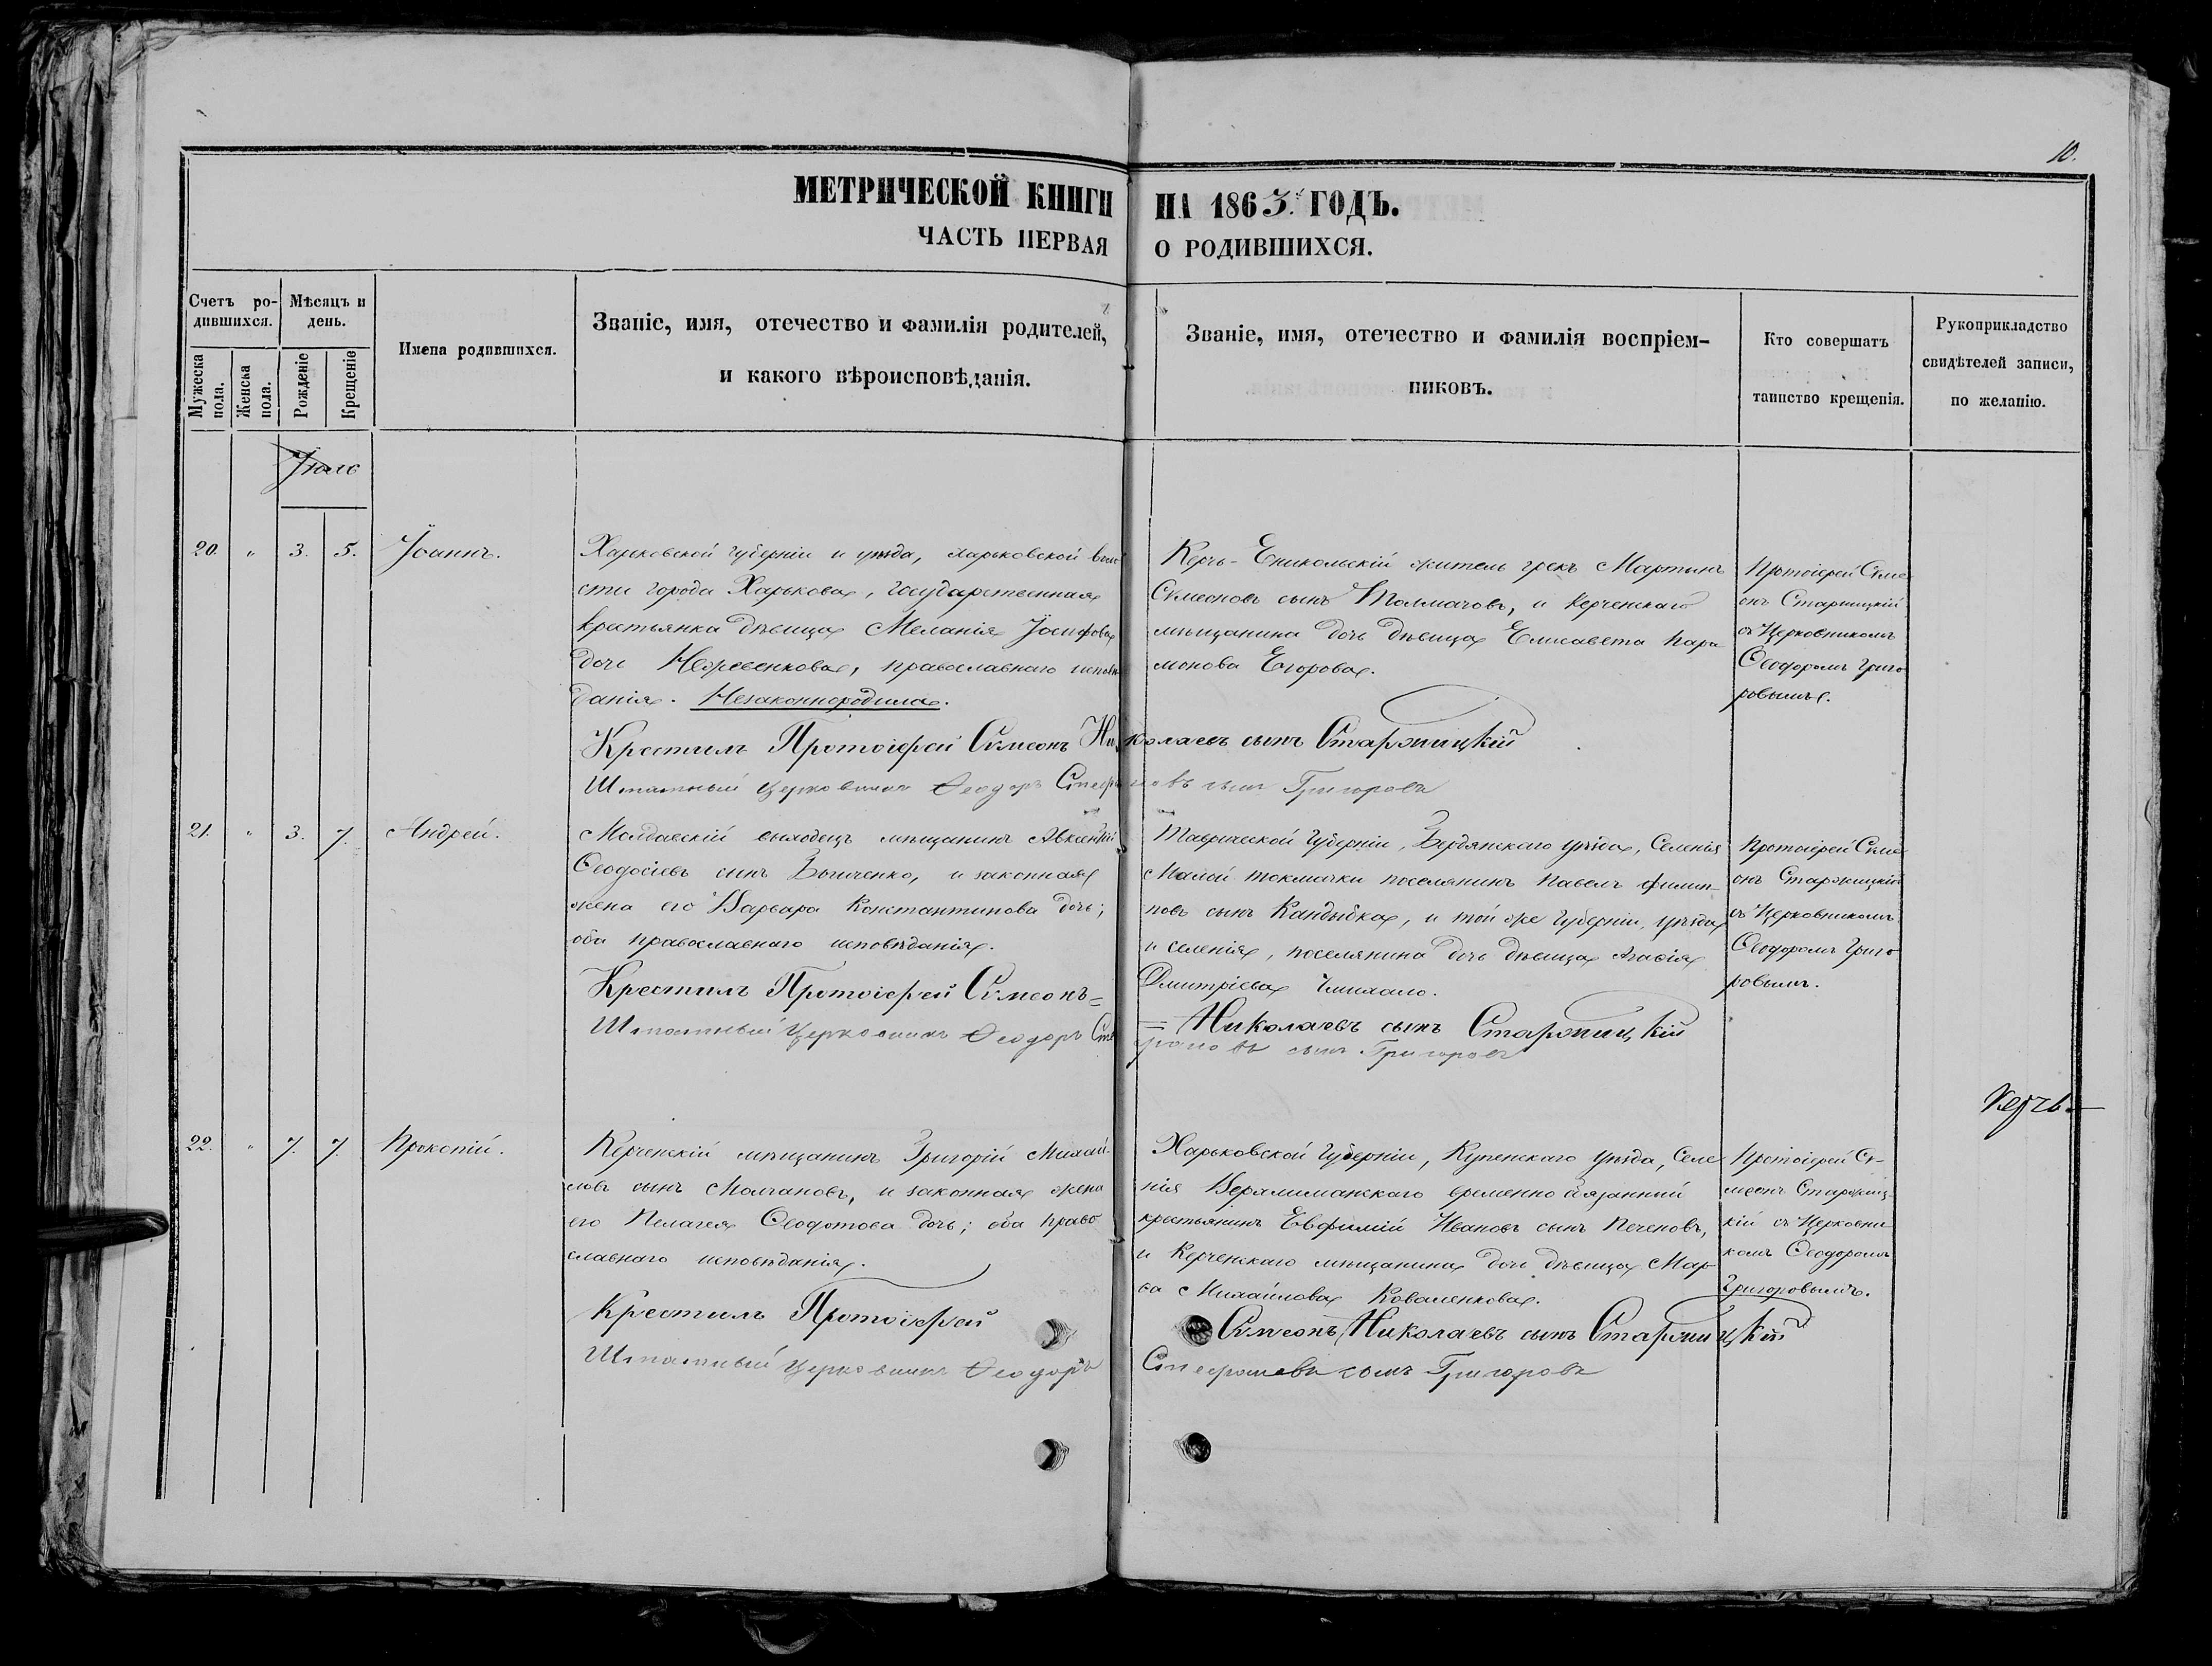 10.
МЕТРИЧЕСКОЙ КНИГИ НА 1863. ГОДЪ.
ЧАСТЬ ПЕРВАЯ О РОДИВШИХСЯ.
Счетъ ро-
дившихся.
Мужеска пола.
Женска пола.
Мѣсяцъ и день.
Рожденіе
Крещеніе
Имена родившихся.
Званіе, имя, отечество и фамилія родителей,
и какого вѣроисповѣданія.
Званіе, имя, отечество и фамилія воспріем-
никовъ.
Кто совершатъ
таинство крещенія.
Рукоприкладство
свидѣтелей записи,
по желанію.
Іюль
20. " 3. 5. Іоаннъ.
Харьковской губерніи и уѣзда, харьковской воло
сти города Харькова, государственная
крестьянка дѣвица Меланія Іосифова
дочь православнаго исповѣ
данія. Незаконнородила.
Керчь-Еникольскій житель грекъ Мартынъ
Сѵмеоновъ сынъ Толмачовъ, и керченскаго
мѣщанина дочь дѣвица Елисавета Пара
монова Егорова.
Протоіерей Сѵме
онъ Старжицкій
съ Церковникомъ
Ѳеодоромъ Григо
ровымъ.
Крестилъ Протоіерей Сѵмеонъ Николаевъ сынъ Старжицкій
Штатный церковникъ Ѳеодоръ Стефановъ сынъ Григоровъ
21. " 3. 7. Андрей.
Молдавскій выходецъ мѣщанинъ Авксентій
Ѳеодосіевъ сынъ и законная
жена его Варвара Константинова дочь;
оба православнаго исповѣданія.
Таврической Губерніи, Бердянскаго уѣзда, Селенія
Малой токмачки поселянинъ Павелъ Филип-
повъ сынъ Кандыбка, и той же Губерніи, уѣзда
и селенія, поселянина дочь дѣвица Агафія
Дмитріева
Протоіерей Сѵме
онъ Старжицкій
съ Церковникомъ
Ѳеодоромъ Григо
ровымъ.
Крестилъ Протоіерей Сѵмеонъ=
=Николаевъ сынъ Старжицкій
Штатный церковникъ Ѳеодоръ Сте
фановъ сынъ Григоровъ
Керчь—
22. " 7. 7. Прокопій.
Керченскій мѣщанинъ Григорій Михай-
ловъ сынъ Молчановъ, и законная жена
его Пелагея Ѳеодотова дочь; оба право
славнаго исповѣданія.
Харьковской Губерніи, Купенскаго уѣзда, Селе
нія временно обязанный
крестьянинъ Евфимій Ивановъ сынъ Печеновъ,
и Керченскаго мѣщанина дочь дѣвица Мар-
Михайлова Коваленкова.
Протоіерей Сѵ-
меонъ Старжиц-
кій съ Церковни
комъ Ѳеодоромъ
Григоровымъ.
Крестилъ Протоіерей
Сѵмеонъ Николаевъ сынъ Старжицкій
Штатный церковникъ Ѳеодоръ
Стефановъ сынъ Григоровъ